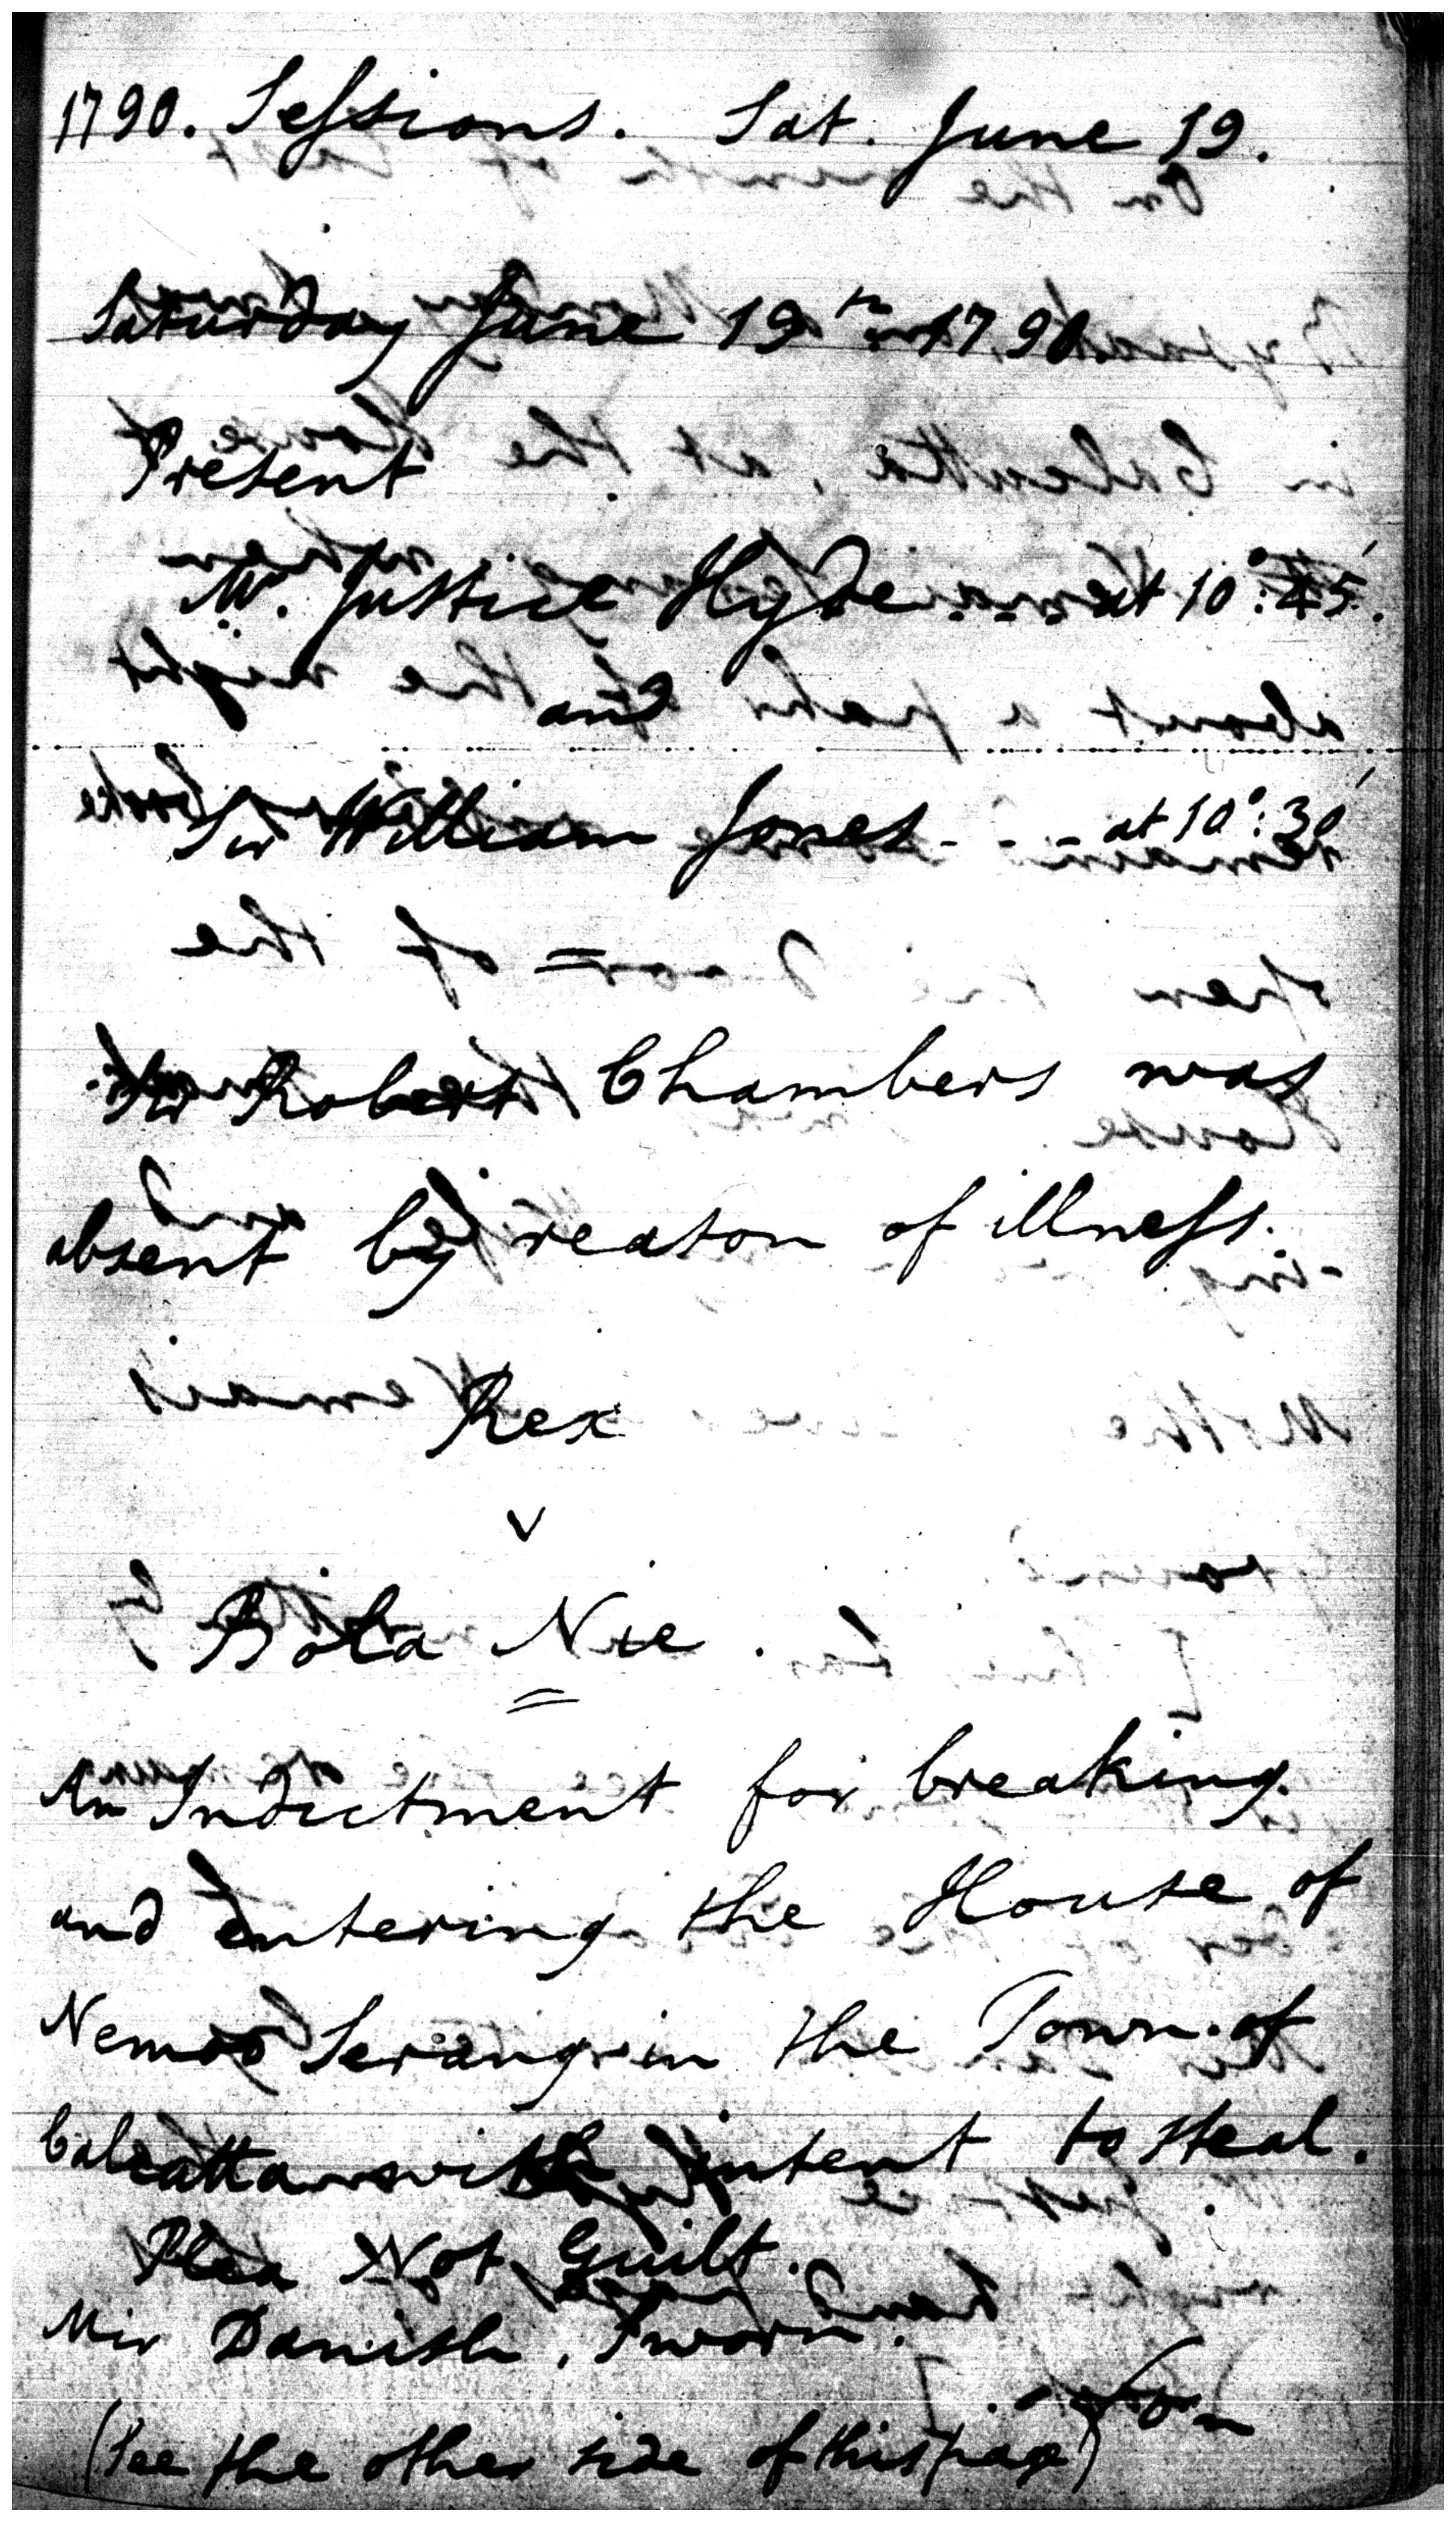 1790. Sessions. Sat. June 19.
Saturday June 19th 1790
Present
Mr. Justice Hyde - - - at 10°:45'.
and
Sir William Jones - - - at 10°:30'
Sir Robert Chambers was
absent by reason of illness.
Rex
v
Bola Nie.
An Indictment for breaking
and Entering the House of
Nemoo Serang in the Town of
Calcutta with intent to steal.
Plea Not Guilt.
Mir Danish. Sworn.
On
(See the other side of this page)